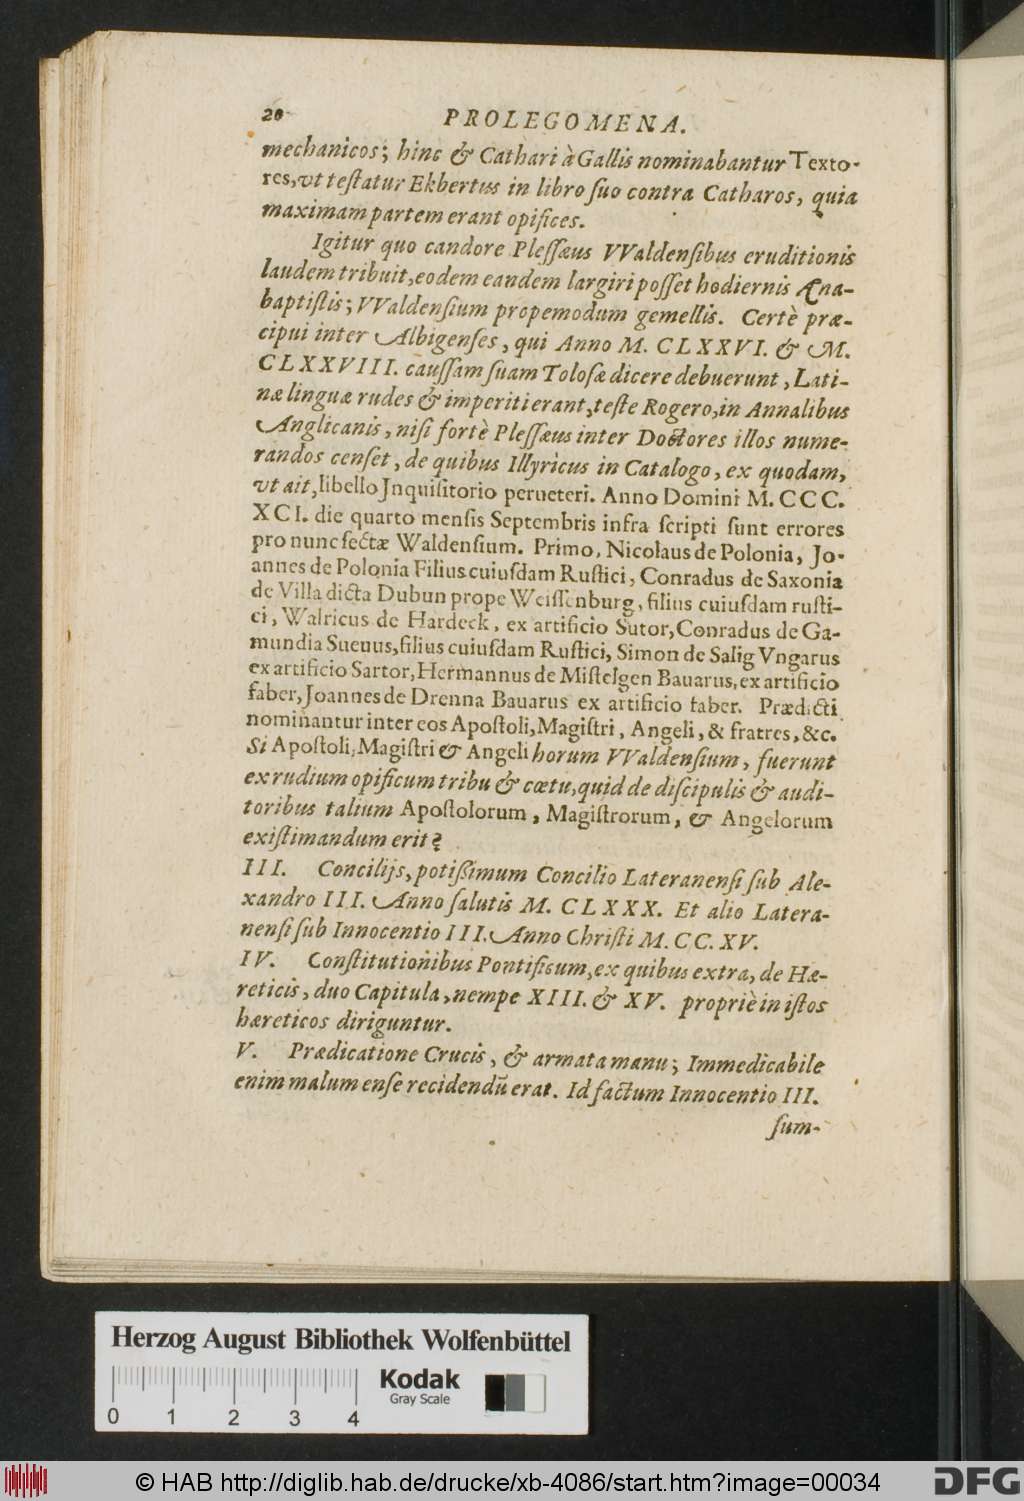 20 PROLEGOMENA.
mechanicos; hinc & Cathari à Gallis nominabantur Texto-
res, vt testatur Ekbertus in libro suo contra Catharos, quia
maximam partem erant opifices.
Igitur quo candore Plessæus VValdensibus eruditionis
laudem tribuit, eodem eandem largiri posset hodiernis Ana-
baptistis; VValdensium propemodum gemellis. Certè præ-
cipui inter Albigenses, qui Anno M. CLXXVI. & M.
CLXXVIII. caussam suam Tolosæ dicere debuerunt, Lati-
næ linguæ rudes & imperiti erant, teste Rogero, in Annalibus
Anglicanis, nisi fortè Plessæus inter Doctores illos nume-
randos censet, de quibus Illyricus in Catalogo, ex quodam,
vt ait, libello Jnquisitorio perueteri. Anno Domini M. CCC.
XCI. die quarto mensis Septembris infra scripti sunt errores
pro nunc sectæ Waldensium. Primo, Nicolaus de Polonia, Jo-
annes de Polonia Filius cuiusdam Rustici, Conradus de Saxonia
de Villa dicta Dubun prope Weissenburg, filius cuiusdam rusti-
ci, Walricus de Hardeck, ex artificio Sutor, Conradus de Ga-
mundia Sueuus, filius cuiusdam Rustici, Simon de Salig Vngarus
ex artificio Sartor, Hermannus de Mistelgen Bauarus, ex artificio
faber, Joannes de Drenna Bauarus ex artificio faber. Prædicti
nominantur inter eos Apostoli, Magistri, Angeli, & fratres, &c.
Si Apostoli, Magistri & Angeli horum VValdensium, fuerunt
ex rudium opificum tribu & cœtu, quid de discipulis & audi-
toribus talium Apostolorum, Magistrorum, & Angelorum
existimandum erit?
III. Concilijs, potißimum Concilio Lateranensi sub Ale-
xandro III. Anno salutis M. CLXXX. Et alio Latera-
nensi sub Innocentio III. Anno Christi M. CC. XV.
IV. Constitutionibus Pontificum, ex quibus extra, de Hæ-
reticis, duo Capitula, nempe XIII. & XV. propriè in istos
hæreticos diriguntur.
V. Prædicatione Crucis, & armata manu; Immedicabile
enim malum ense recidendũ erat. Id factum Innocentio III.
sum-
Herzog August Bibliothek Wolfenbüttel
Kodak
Gray Scale
0 1 2 3 4
© HAB http://diglib.hab.de/drucke/xb-4086/start.htm?image=00034
DFG